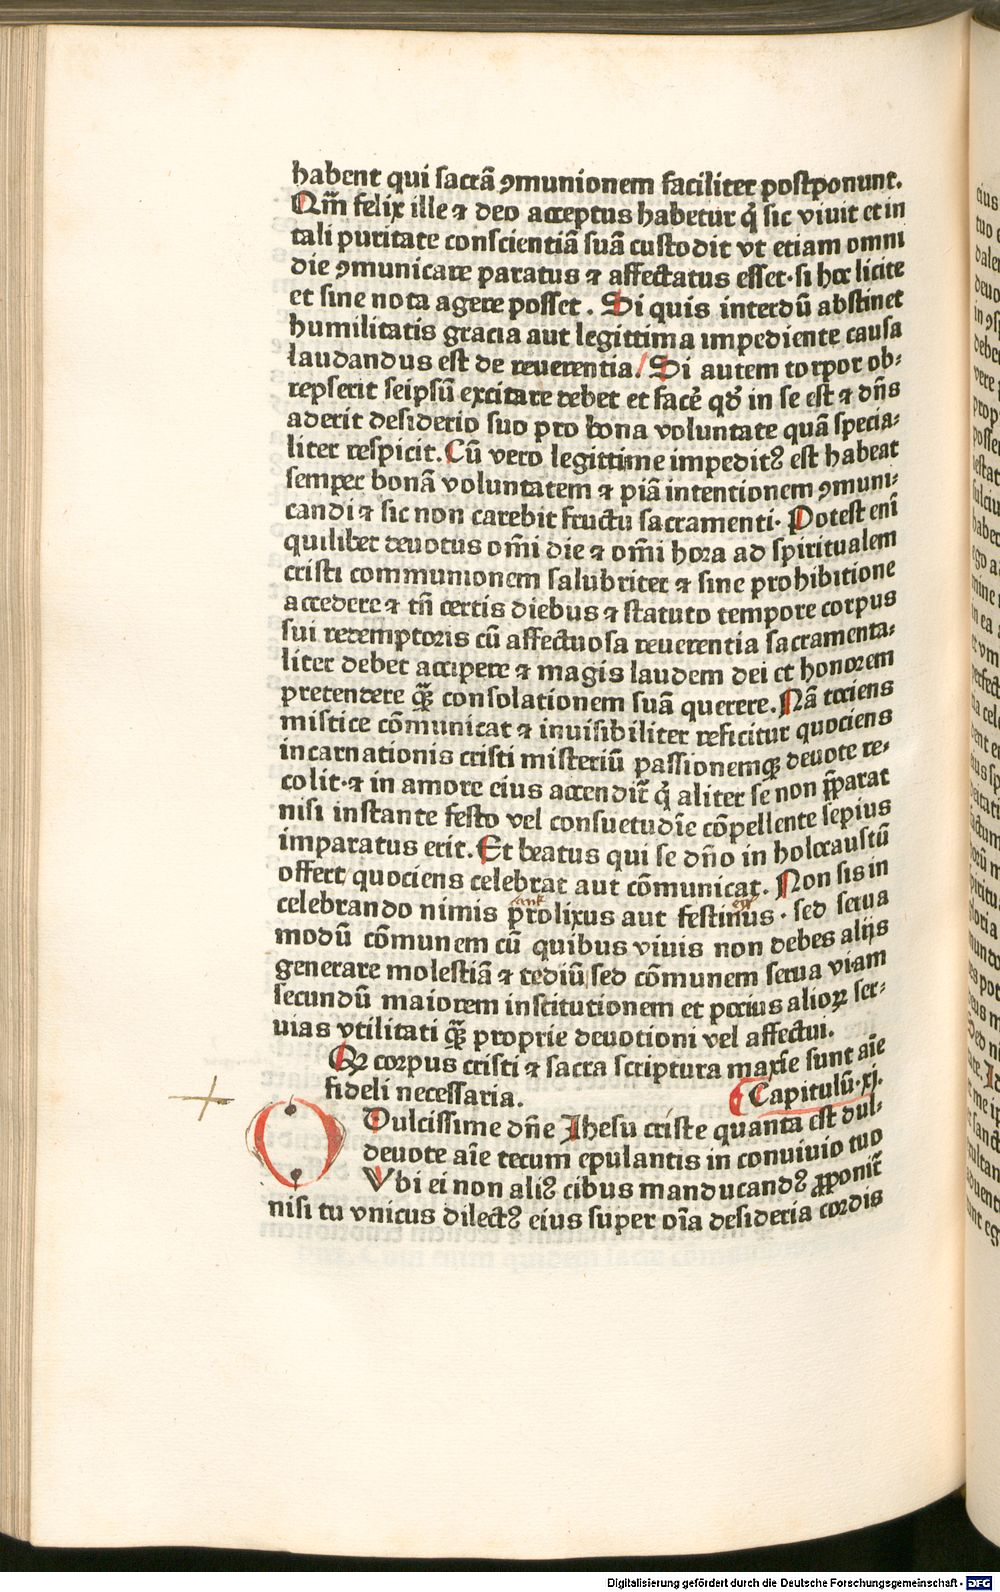 habent qui sacrā ꝯmunionem faciliter postponunt.
Qm̄ felix ille ⁊ deo acceptus habetur q̇ sic viuit et in
tali puritate conscientiā suā custodit vt etiam omni
die ꝯmunicare paratus ⁊ affectatus esset·si hoc licite
et sine nota agere posset. Si quis interdū abstinet
humilitatis gracia aut legittima impediente causa
laudandus est de reuerentia. Si autem torpor ob⸗
repserit seipsū excitare debet et facẽ qđ in se est ⁊ dn̄s
aderit desiderio suo pro bona voluntate quā specia⸗
liter respicit. Cū vero legittime impeditꝰ est habeat
semper bonā voluntatem ⁊ piā intentionem ꝯmuni⸗
candi ⁊ sic non carebit fructu sacramenti· Potest enī
quilibet deuotus om̄i die ⁊ om̄i hora ad spiritualem
cristi communionem salubriter ⁊ sine prohibitione
accedere ⁊ tn̄ certis diebus ⁊ statuto tempore corpus
sui redemptoris cū affectuosa reuerentia sacramenta⸗
liter debet accipere ⁊ magis laudem dei et honorem
pretendere ꝙ̄ consolationem suā querere. Nā tociens
mistice cōmunicat ⁊ inuisibiliter reficitur quociens
incarnationis cristi misteriū passionemqꝫ deuote re⸗
colit·⁊ in amore eius accendit̄ q̇ aliter se non p̄parat
nisi instante festo vel consuetudīe cōpellente sepius
imparatus erit. Et beatus qui se dn̄o in holocaustū
offert quociens celebrat aut cōmunicat. Non sis in
celebrando nimis prolixus aut festinus·sed serua
modū cōmunem cū quibus viuis non debes alijs
generare molestiā ⁊ tediū sed cōmunem serua viam
secundū maiorem institutionem et pocius alioꝝ ser⸗
uias vtilitati ꝙ̄ proprie deuotioni vel affectui.
Qꝫ corpus cristi ⁊ sacra scriptura maxīe sunt aīe
fideli necessaria. Capitulū·xj.
O Dulcissime dn̄e Jhesu criste quanta est dul⸗
deuote aīe tecum epulantis in conuiuio tuo
Vbi ei non aliꝰ cibus manducandꝰ ꝓponit̄
nisi tu vnicus dilectꝰ eius super oīa desideria cordis
Digitalisierung gefördert durch die Deutsche Forschungsgemeinschaft - DFG